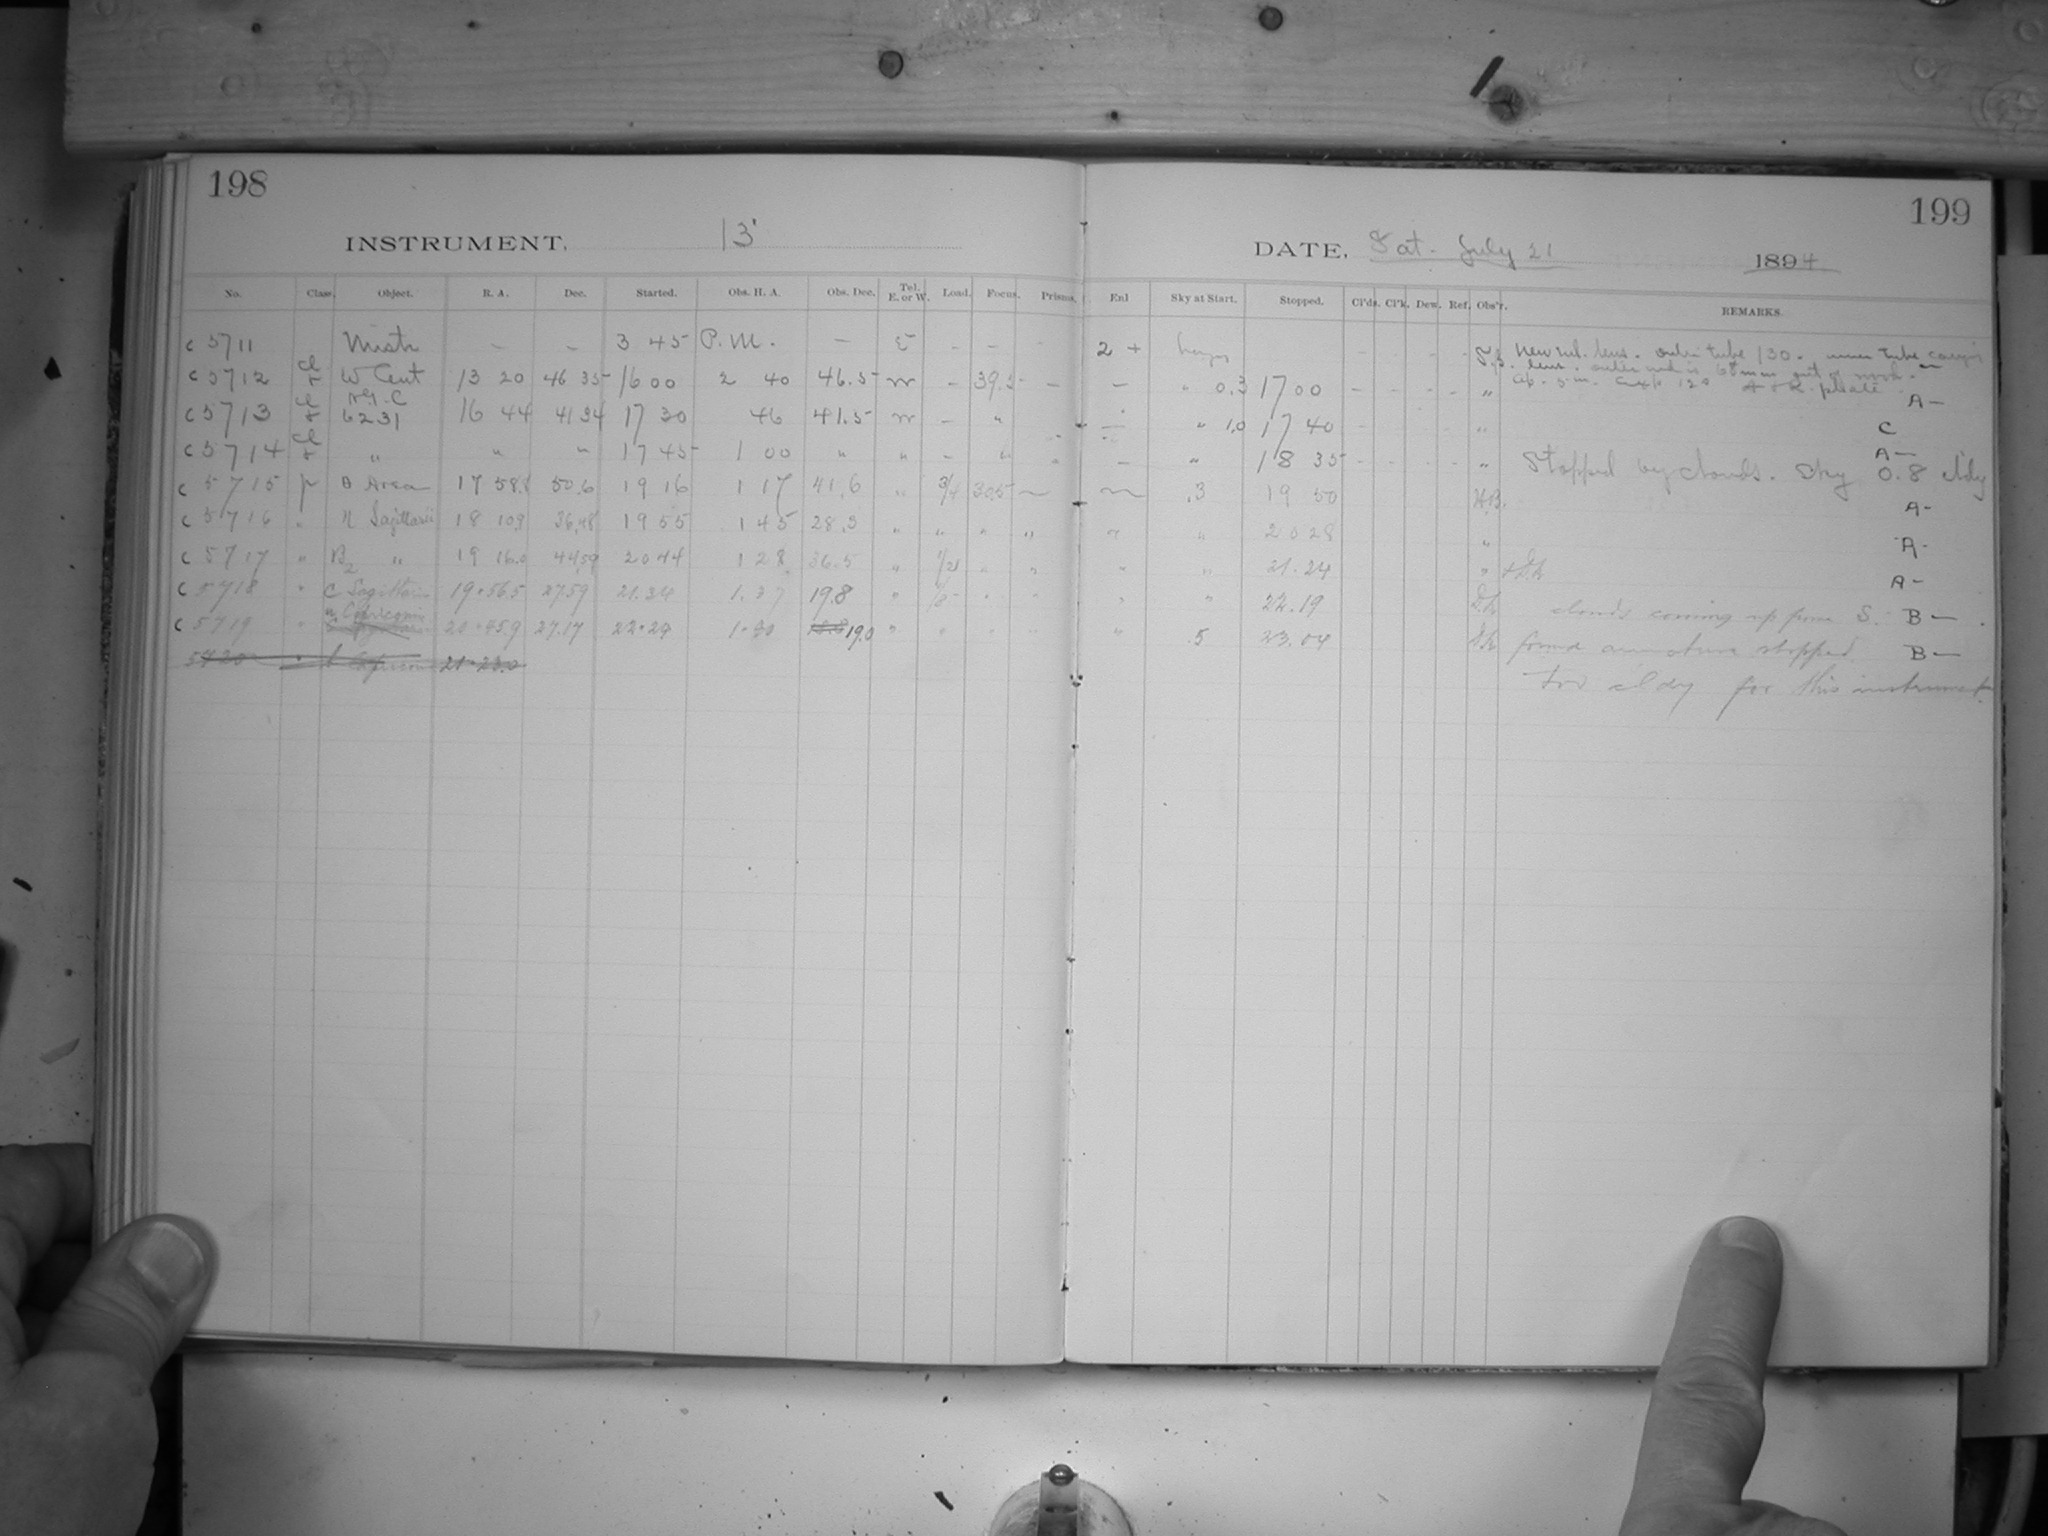 198
199
INSTRUMENT, 13"
DATE, Sat. July 21 1894
No. Class. Object. R. A. Dec. Started. Obs. H. A. Obs. Dec. Tel. E. or W. Load. Focus. Prisms. Enl Sky at Start. Stopped. Cl'ds. Cl'k. Dew. Ref. Obs'r. REMARKS.
c 5711 – – 3 45 P.M. – E – – – 2 + hazy – – – New lens. outer tube 130. inner tube
c 5712 Cl W Cent 13 20 46 35 16 00 2 40 46.5 W – 39.5 – – " 0.3 17 00 – – – – " A–
c 5713 Cl N.G.C 6231 16 44 41 34 17 30 46 41.5 W – " " 1.0 17 40 " C
c 5714 Cl " " " 17 45 1 00 " " – " – " 18 35 " Stopped by clouds. Sky 0.8 cldy A–
c 5715 θ Arae 17 58.1 50.6 19 16 1 17 41.6 " 3/4 30.5 .3 19 50 H.B. A–
c 5716 " η Sagittarii 18 10.9 36.48 19 55 1 45 28.3 " " " " " 20 28 " A–
c 5717 " B2 " 19 16.0 44.59 20 44 1 28 36.5 " " " " " 21.24 " A–
c 5718 " C Sagittarii 19 56.5 27.59 21.34 1.37 19.8 " " " " " 22.19 clouds coming up from S. B–
c 5719 " Capricorni 20 45.9 27.17 22 24 1.30 19.0 " " " " " .5 23.04 stopped B–
5720 " Capricorni 21 23.0
Too cldy for this instrument